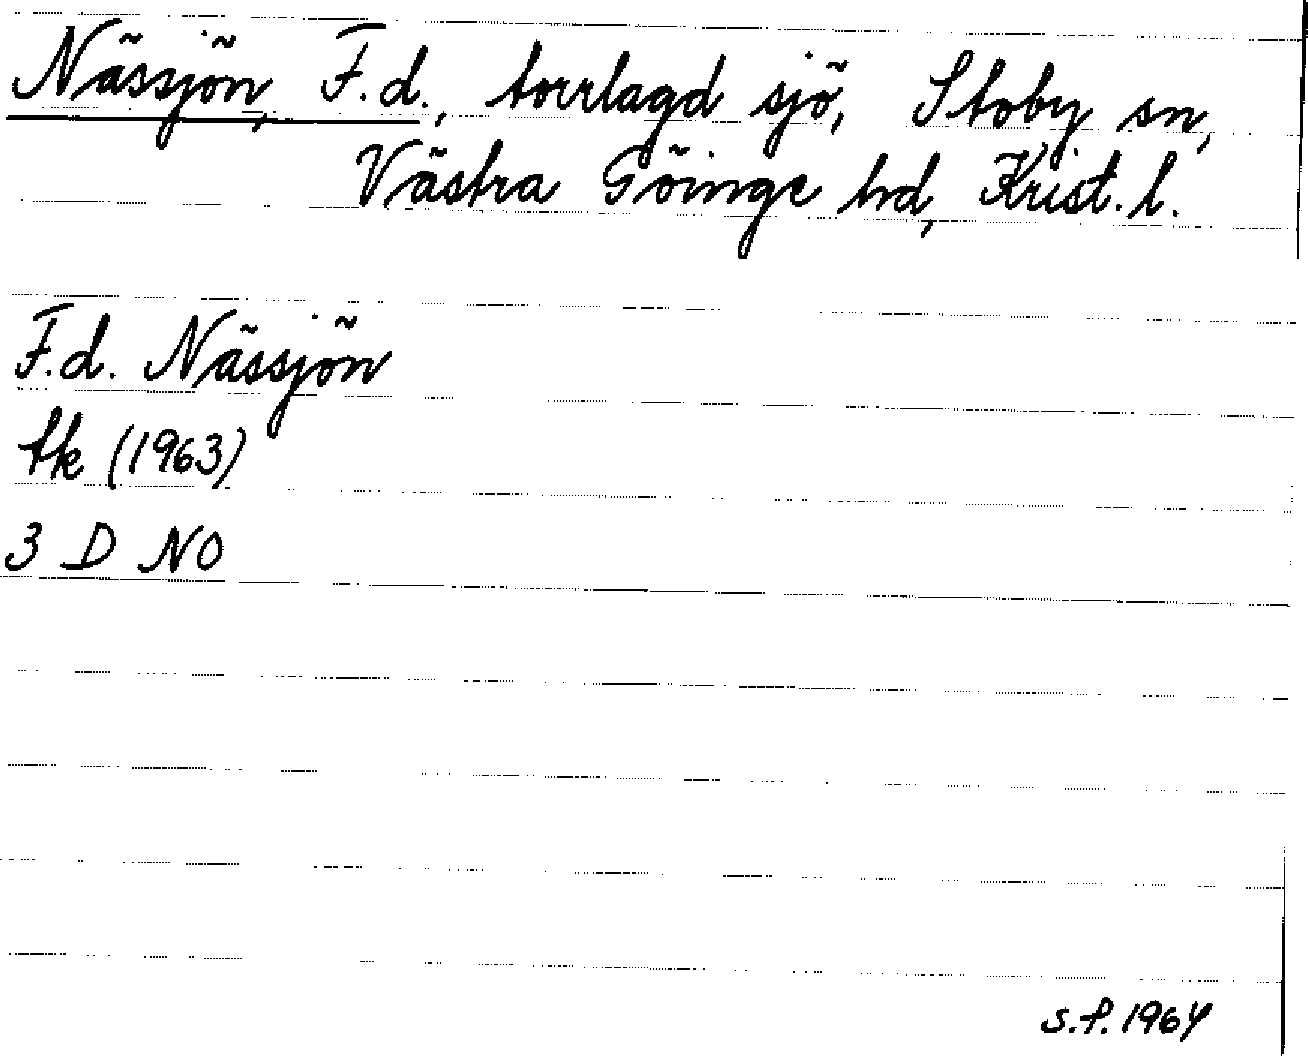 Nässjön, F.d., torrlagd sjö, Stoby sn,
Västra Göinge hd, Krist. l.
F.d. Nässjön
tk (1963)
3 D NO
s.f. 1964